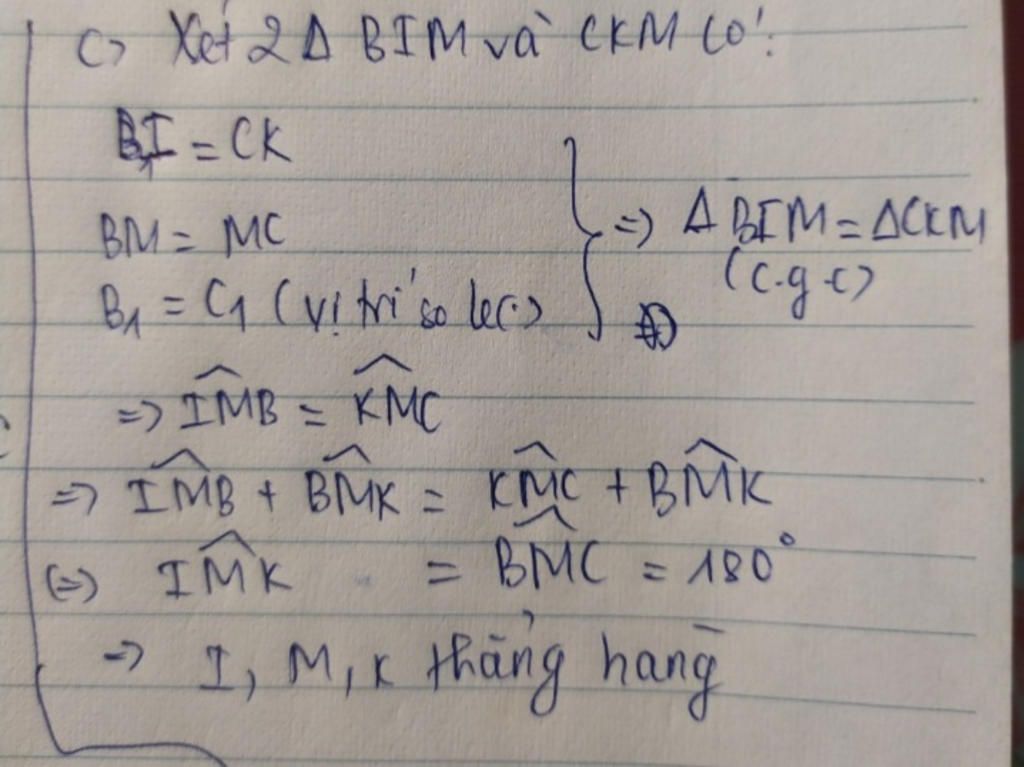 c) Xét 2 Δ BIM và CKM có:
BI = CK
BM = MC
B₁ = C₁ (vị trí so le)
=> Δ BIM = ΔCKM
(c.g.c)
=> \widehat{IMB} = \widehat{KMC}
=> \widehat{IMB} + \widehat{BMK} = \widehat{KMC} + \widehat{BMK}
(=) \widehat{IMK} = \widehat{BMC} = 180°
=> I, M, K thẳng hàng